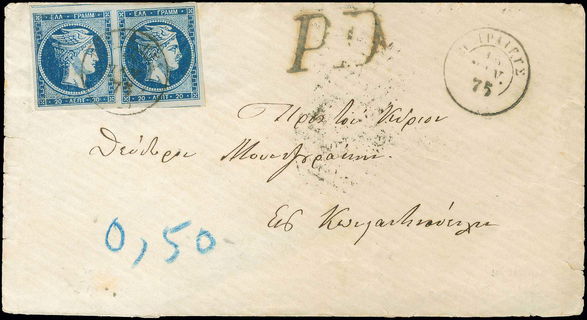 ΕΛΛ ΓΡΑΜΜ ΕΛΛ ΓΡΑΜΜ
20 ΛΕΠΤ 20 20 ΛΕΠΤ 20
75
PD
75
Προς τον Κύριον
Θεόδωρον
Εις Κωνσταντινούπολιν
0,50